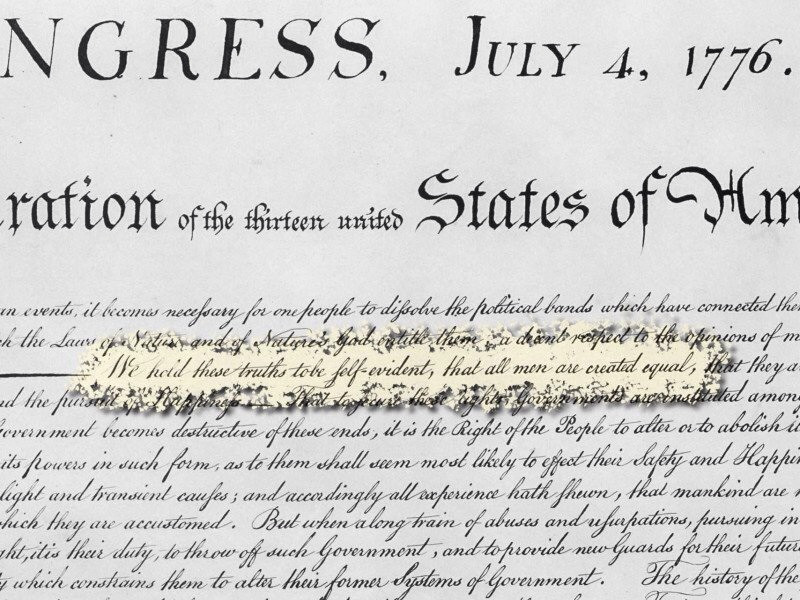 NGRESS, JULY 4, 1776.
ration of the thirteen united States of Am
an events, it becomes neceſsary for one people to diſsolve the political bands which have connected the
h the Laws of Nature and of Nature's God entitle them, a decent respect to the opinions of m
We hold these truths to be ſelf-evident, that all men are created equal, that they ar
nd the pursuit of Happiness — That to secure these rights, Governments are instituted among
Government becomes destructive of these ends, it is the Right of the People to alter or to abolish it
its powers in such form, as to them shall seem most likely to effect their Safety and Happin
light and transient cauſes; and accordingly all experience hath ſhewn, that mankind are
hich they are accustomed. But when a long train of abuses and uſurpations, pursuing in
ght, it is their duty, to throw off such Government, and to provide new Guards for their future
y which constrains them to alter their former Systems of Government. The history of the